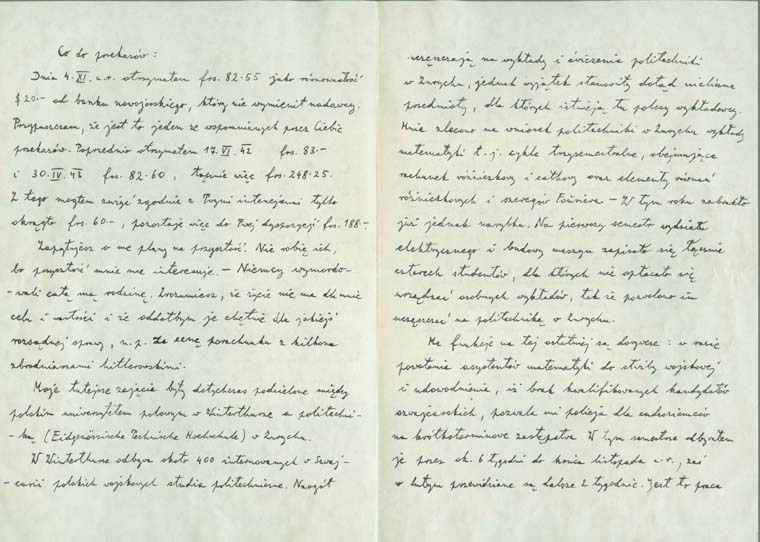 Co do przekazów:
Dnia 4.XI. u.r. otrzymałem frs. 82.55 jako równowartość
$ 20.- od banku nowojorskiego, który nie wymienił nadawcy.
Przypuszczam, że jest to jeden ze wspomnianych przez Ciebie
przekazów. Poprzednio otrzymałem 17.VI.42 frs. 83.-
i 30.IV.43 frs. 82.60, łącznie więc frs. 248.25.
Z tego mogłem zużyć zgodnie z Twymi intencjami tylko
okrągło frs. 60.-, pozostaje więc do Twej dyspozycji frs. 188.-
Zapytujesz o me plany na przyszłość. Nie robię ich,
bo przyszłość mnie nie interesuje. - Niemcy wymordo-
-wali całą mą rodzinę. Zrozumiesz, że życie nie ma dla mnie
celu i wartości i że oddałbym je chętnie dla jakiejś
rozsądnej sprawy, n.p. za cenę porachunku z kilkoma
zbrodniarzami hitlerowskimi.
Moje tutejsze zajęcia były dotychczas podzielone między
polskim uniwersytetem polowym w Winterthurze a politechni-
-ką (Eidgenössische Technische Hochschule) w Zurychu.
W Winterthurze odbywa około 400 internowanych w Szwaj-
-carii polskich wojskowych studia politechniczne. Naogół
uczęszczają na wykłady i ćwiczenia politechniki
w Zurychu, jednak wyjątek stanowiły dotąd nieliczne
przedmioty, dla których istnieją tu polscy wykładowcy.
Mnie zlecono na wniosek politechniki w Zurychu wykłady
matematyki t.j. cykle trzysemestralne, obejmujące
rachunek różniczkowy i całkowy oraz elementy równań
różniczkowych i szeregów Fouriera - W tym roku zabrakło
już jednak narybku. Na pierwszy semestr wydziału
elektrycznego i budowy maszyn zapisało się łącznie
czterech studentów, dla których nie opłacało się
urządzać osobnych wykładów, tak że pozwolono im
uczęszczać na politechnikę w Zurychu.
Me funkcje na tej ostatniej są doryw­cze: w razie
powołania asystentów matematyki do służby wojskowej
i udowodnienia, iż brak kwalifikowanych kandydatów
szwajcarskich, pozwala mi policja dla cudzoziemców
na krótkoterminowe zastępstwa. W tym semestrze odbyłem
je przez ok. 6 tygodni do końca listopada u.r., zaś
w lutym przewidziane są dalsze 2 tygodnie. Jest to praca